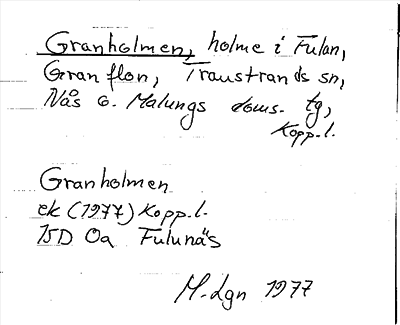 Granholmen, holme i Fulan,
Granflon, Transtrands sn,
Nås o. Malungs doms. tg,
Kopp.l.
Granholmen
ek (1977) Kopp.l.
15D Oa Fulunäs
M-Lgn 1977